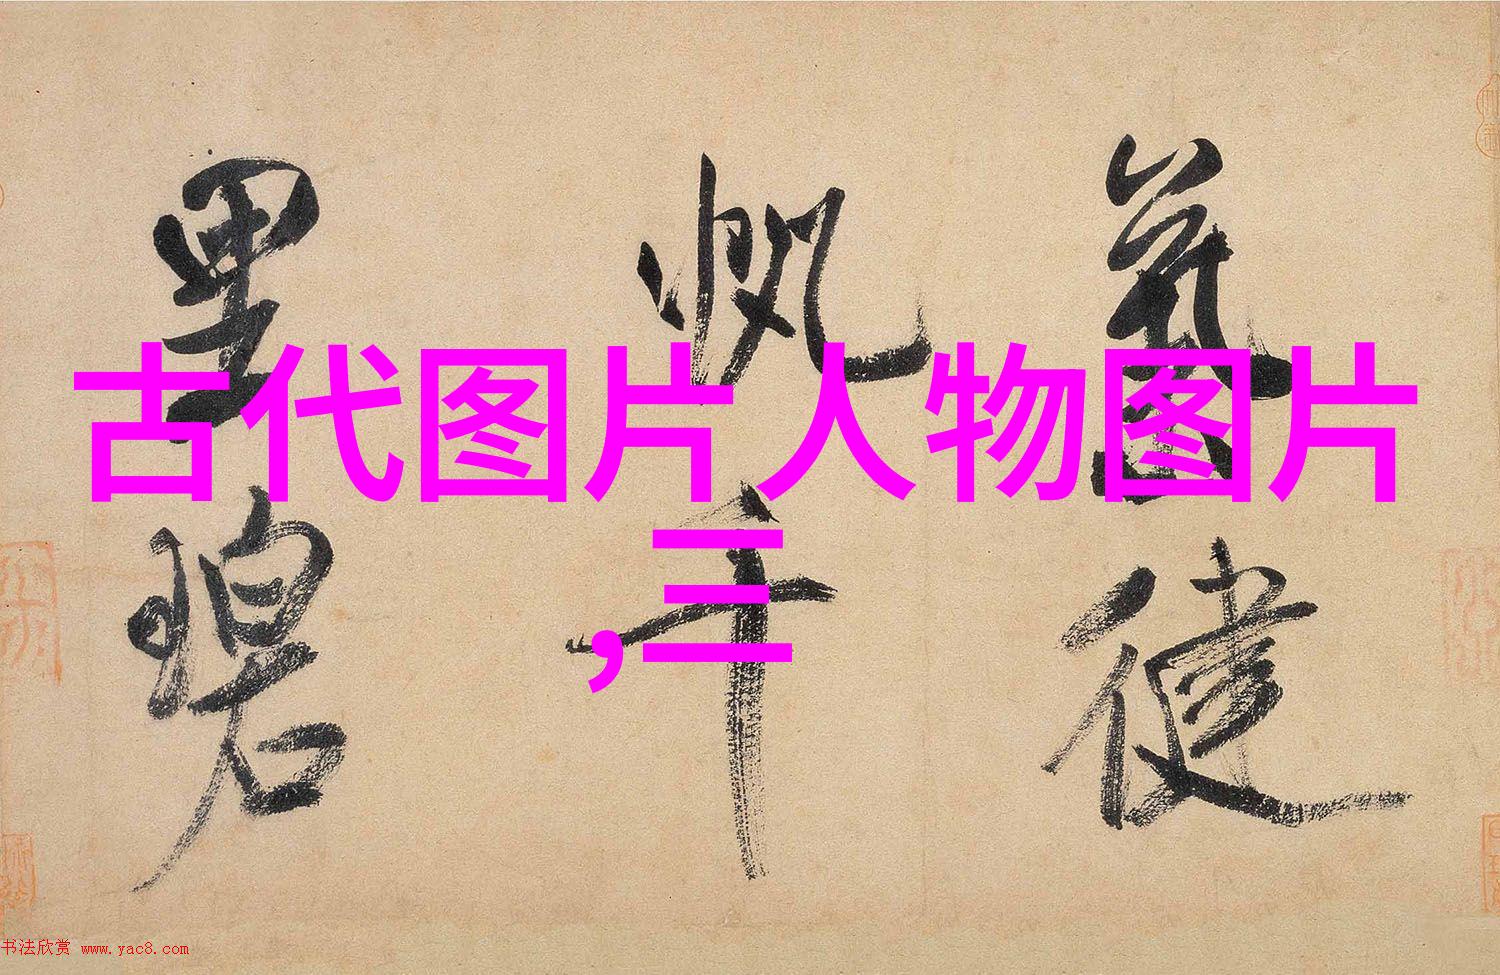 氣健
帆千
里碧
古代图片人物图片
,三
书法欣赏 www.yac8.com